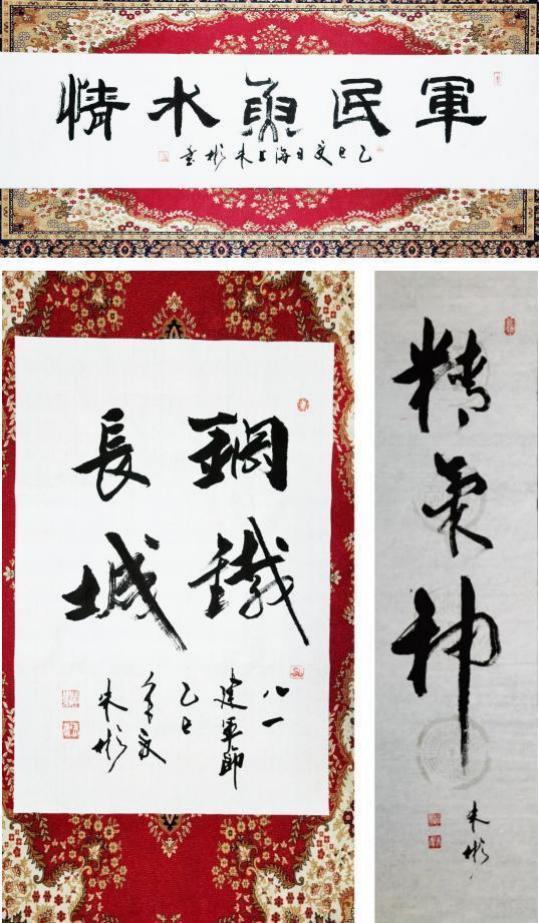 軍民魚水情
乙巳夏日海上朱彬書
鋼鐵
長城
八一
建軍節
乙巳
年夏
朱彬
精氣神
朱彬